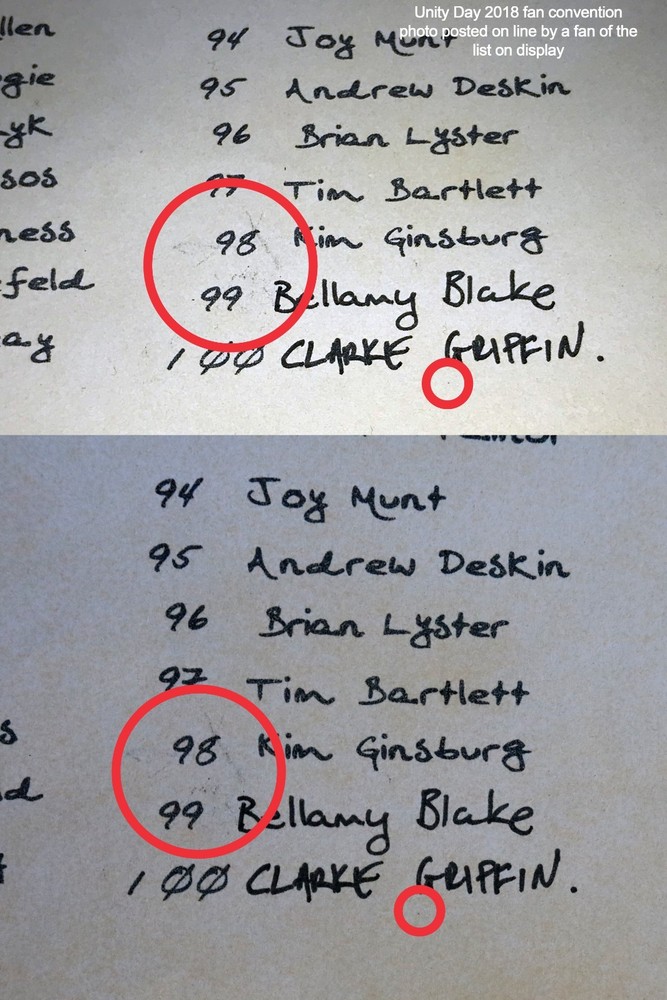 Unity Day 2018 fan convention
photo posted on line by a fan of the
list on display
llen
94 Joy Munt
gie
95 Andrew Deskin
yk
96 Brian Lyster
sos
97 Tim Bartlett
ness
98 Kim Ginsburg
feld
99 Bellamy Blake
ay
100 CLARKE GRIFFIN.
94 Joy Munt
95 Andrew Deskin
96 Brian Lyster
97 Tim Bartlett
s
98 Kim Ginsburg
d
99 Bellamy Blake
100 CLARKE GRIFFIN.